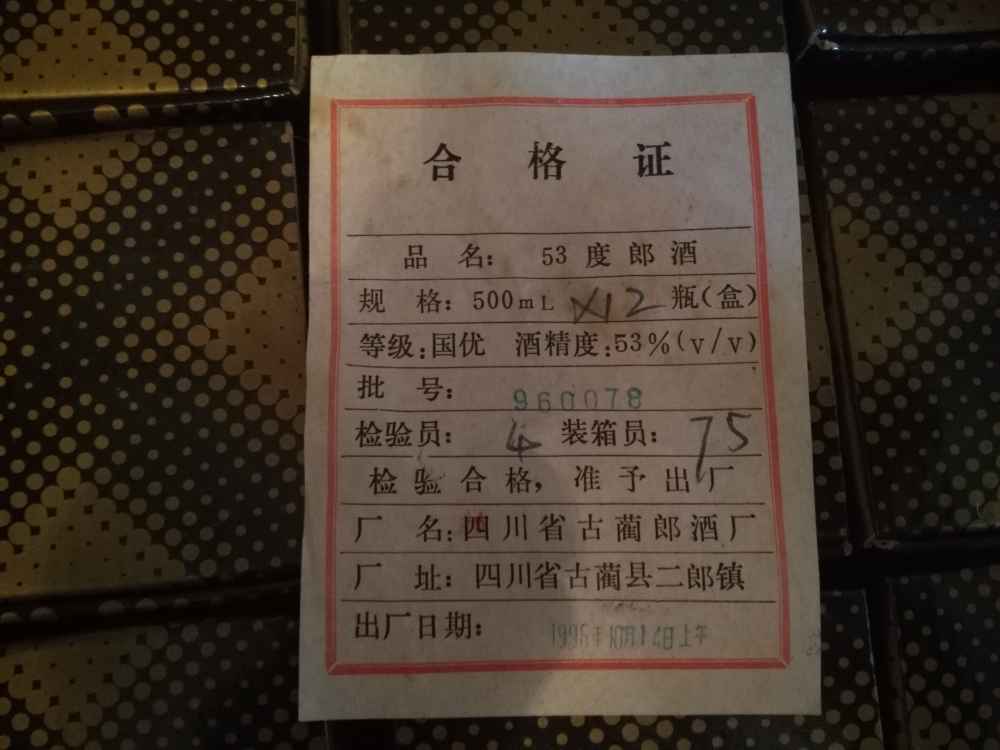 合格证
品名: 53度郎酒
规格: 500mL ×12 瓶(盒)
等级:国优 酒精度:53%(v/v)
批号: 960078
检验员: 4 装箱员: 75
检验合格，准予出厂
厂名:四川省古蔺郎酒厂
厂址: 四川省古蔺县二郎镇
出厂日期: 1996年10月12日上午